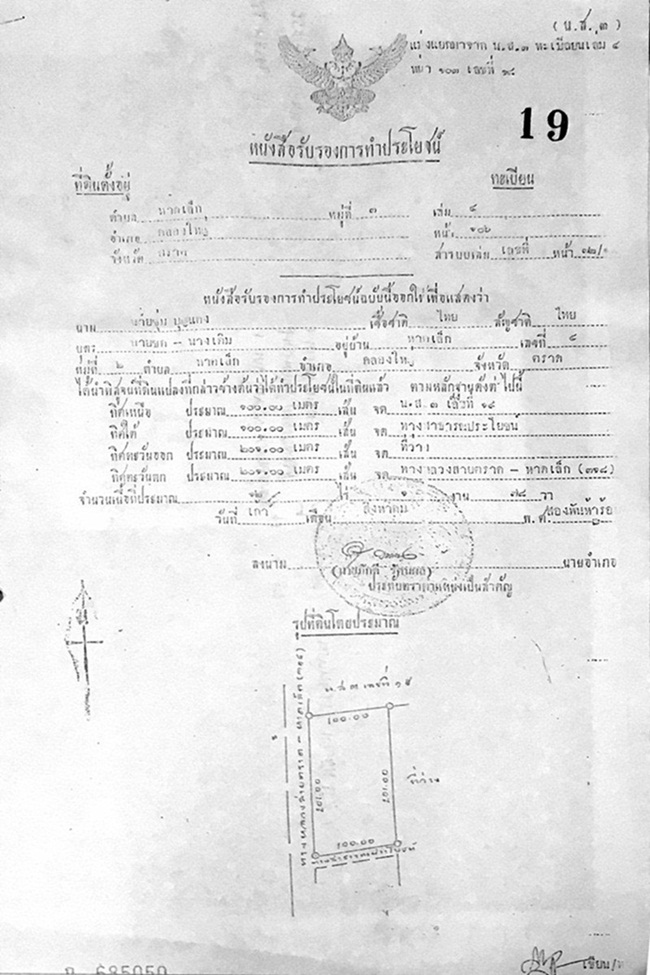 (น.ส.๓)
แบ่งแยกมาจาก น.ส.๓ ทะเบียนเล่ม ๔
หน้า ๑๐๓ เลขที่ ๑๘
19
หนังสือรับรองการทำประโยชน์
ที่ดินตั้งอยู่ ทะเบียน
ตำบล หาดเล็ก หมู่ที่ เล่ม
อำเภอ คลองใหญ่ หน้า ๑๐๖
จังหวัด ตราด สารบบเล่ม เลขที่ หน้า
หนังสือรับรองการทำประโยชน์ฉบับนี้ออกให้เพื่อแสดงว่า
นาม เชื้อชาติ ไทย สัญชาติ ไทย
บุตร อยู่บ้าน หาดเล็ก เลขที่
หมู่ที่ ๒ ตำบล หาดเล็ก อำเภอ คลองใหญ่ จังหวัด ตราด
ได้นำพิสูจน์ที่ดินแปลงที่กล่าวข้างต้นว่าได้ทำประโยชน์ในที่ดินแล้ว ตามหลักฐานดังต่อไปนี้
ทิศเหนือ ประมาณ ๑๐๐.๐๐ เมตร เส้น จด น.ส.๓ เลขที่ ๑๘
ทิศใต้ ประมาณ ๑๐๐.๐๐ เมตร เส้น จด ทางสาธารณะประโยชน์
ทิศตะวันออก ประมาณ ๒๐๑.๐๐ เมตร เส้น จด ที่ว่าง
ทิศตะวันตก ประมาณ ๒๐๑.๐๐ เมตร เส้น จด ทางหลวงสายตราด - หาดเล็ก (๓๑๘)
จำนวนเนื้อที่ประมาณ ๑๒ ไร่ งาน ๗๘ วา
วันที่ เก้า เดือน สิงหาคม พ.ศ. สองพันห้าร้อย
ลงนาม นายอำเภอ
ประทับตราตำแหน่งเป็นสำคัญ
รูปที่ดินโดยประมาณ
น.ส.๓ เลขที่ ๑๘
100.00
ทางหลวงสายตราด - หาดเล็ก (๓๑๘)
201.00
201.00
ที่ว่าง
100.00
ทางสาธารณะประโยชน์
685050
เขียน/ท